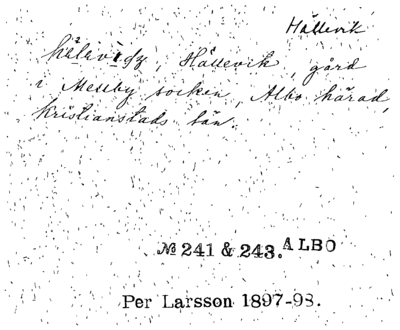 Hällevik
Hällevik, gård
i Mellby socken, Albo härad,
Kristianstads län.
№ 241 & 243. ALBO
Per Larsson 1897-98.